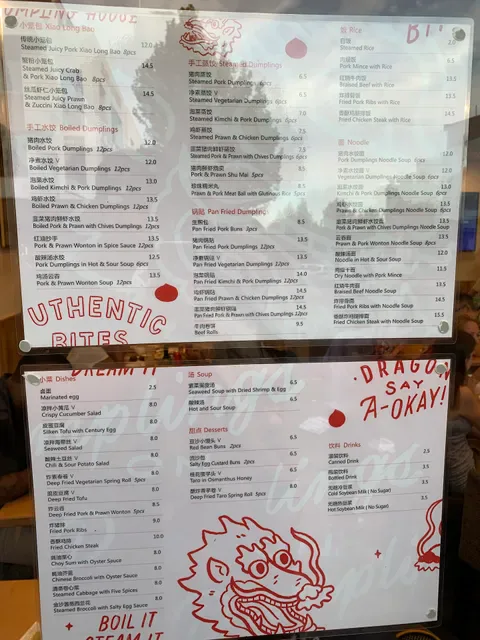 小笼包 Xiao Long Bao
传统小笼包 12.0
Steamed Juicy Pork Xiao Long Bao 8pcs
蟹粉小笼包 14.5
Steamed Juicy Crab
& Pork Xiao Long Bao 8pcs
丝瓜虾仁小笼包 14.5
Steamed Juicy Prawn
& Zuccini Xiao Long Bao 8pcs
手工水饺 Boiled Dumplings
猪肉水饺 12.0
Boiled Pork Dumplings 12pcs
净素水饺 V 12.0
Boiled Vegetarian Dumplings 12pcs
泡菜水饺 13.0
Boiled Kimchi & Pork Dumplings 12pcs
鸡虾水饺 13.5
Boiled Prawn & Chicken Dumplings 12pcs
韭菜猪肉鲜虾水饺 13.5
Boiled Pork & Prawn with Chives Dumplings 12pcs
红油抄手 13.5
Pork & Prawn Wonton in Spice Sauce 12pcs
酸辣汤水饺 13.5
Dumplings in Hot & Sour Soup 6pcs
鸡汤云吞 13.5
Pork & Prawn Wonton Soup 12pcs
UTHENTIC
BITES
手工蒸饺 Steamed Dumplings
猪肉蒸饺 6.5
Steamed Pork Dumplings 6pcs
净素蒸饺 V 6.5
Steamed Vegetarian Dumplings 6pcs
泡菜蒸饺 7.0
Steamed Kimchi & Pork Dumplings 6pcs
鸡虾蒸饺 7.5
Steamed Prawn & Chicken Dumplings 6pcs
韭菜猪肉鲜虾蒸饺 7.5
Steamed Pork & Prawn with Chives Dumplings 6pcs
Pork & Prawn Shu Mai 5pcs
珍珠糯米丸 8.5
Prawn & Pork Meat Ball with Glutinous Rice 5pcs
锅贴 Pan Fried Dumplings
生煎包 8.5
Pan Fried Pork Buns 5pcs
猪肉锅贴 13.5
Pan Fried Pork Dumplings 12pcs
净素锅贴 V 13.5
Pan Fried Vegetarian Dumplings 12pcs
泡菜锅贴 14.0
Pan Fried Kimchi & Pork Dumplings 12pcs
鸡虾锅贴 14.5
Pan Fried Prawn & Chicken Dumplings 12pcs
韭菜猪肉鲜虾锅贴 14.5
Pan Fried Pork & Prawn with Chives Dumplings 12pcs
牛肉卷饼 9.5
Beef Rolls
饭 Rice
Steamed Rice
Pork Mince with Rice
Braised Beef with Rice
Fried Pork Ribs with Rice
Fried Chicken Steak with Rice
面 Noodle
Pork Dumplings Noodle Soup 6pcs
Vegetarian Dumplings Noodle Soup 6pcs
Kimchi & Pork Dumplings Noodle Soup 6pcs
Prawn & Chicken Dumplings Noodle Soup 6pcs
Pork & Prawn with Chives Dumplings Noodle Soup
Prawn & Pork Wonton Noodle Soup
酸辣汤面 12.0
Noodle in Hot & Sour Soup
Dry Noodle with Pork Mince
红烧牛肉面 13.5
Braised Beef Noodle Soup
Fried Pork Ribs with Noodle Soup
Fried Chicken Steak with Noodle Soup
DREAM IT
小菜 Dishes
卤蛋 2.5
Marinated egg
凉拌小黄瓜 V 8.0
Crispy Cucumber Salad
皮蛋豆腐 8.0
Silken Tofu with Century Egg
凉拌海带丝 V
Seaweed Salad
酸辣土豆丝 V 8.0
Chili & Sour Potato Salad
炸素春卷 V 8.0
Deep Fried Vegetarian Spring Roll 5pcs
脆皮豆腐 V 8.0
Deep Fried Tofu
炸云吞 8.5
Deep Fried Pork & Prawn Wonton 5pcs
炸猪排 9.0
Fried Pork Ribs
香酥鸡排 10.0
Fried Chicken Steak
蚝油菜心 8.0
Choy Sum with Oyster Sauce
蚝油芥兰 8.0
Chinese Broccoli with Oyster Sauce
清蒸卷心菜 8.0
Steamed Cabbage with Five Spices
金沙酱西兰花 8.0
Steamed Broccoli with Salty Egg Sauce
BOIL IT
STEAM IT
汤 Soup
紫菜蛋皮汤 6.5
Seaweed Soup with Dried Shrimp & Egg
酸辣汤 6.5
Hot and Sour Soup
甜点 Desserts
豆沙小馒头 V 6.5
Red Bean Buns 2pcs
流沙包 6.5
Salty Egg Custard Buns 2pcs
桂花蜜芋头 V 6.5
Taro in Osmanthus Honey
脆炸香芋卷 V 8.0
Deep Fried Taro Spring Roll 5pcs
DRAGON
SAY
A-OKAY!
饮料 Drinks
罐装饮料 2.5
Canned Drink
瓶装饮料 3.5
Bottled Drink
无糖冷豆浆 3.5
Cold Soybean Milk (No Sugar)
无糖热豆浆 3.5
Hot Soybean Milk (No Sugar)